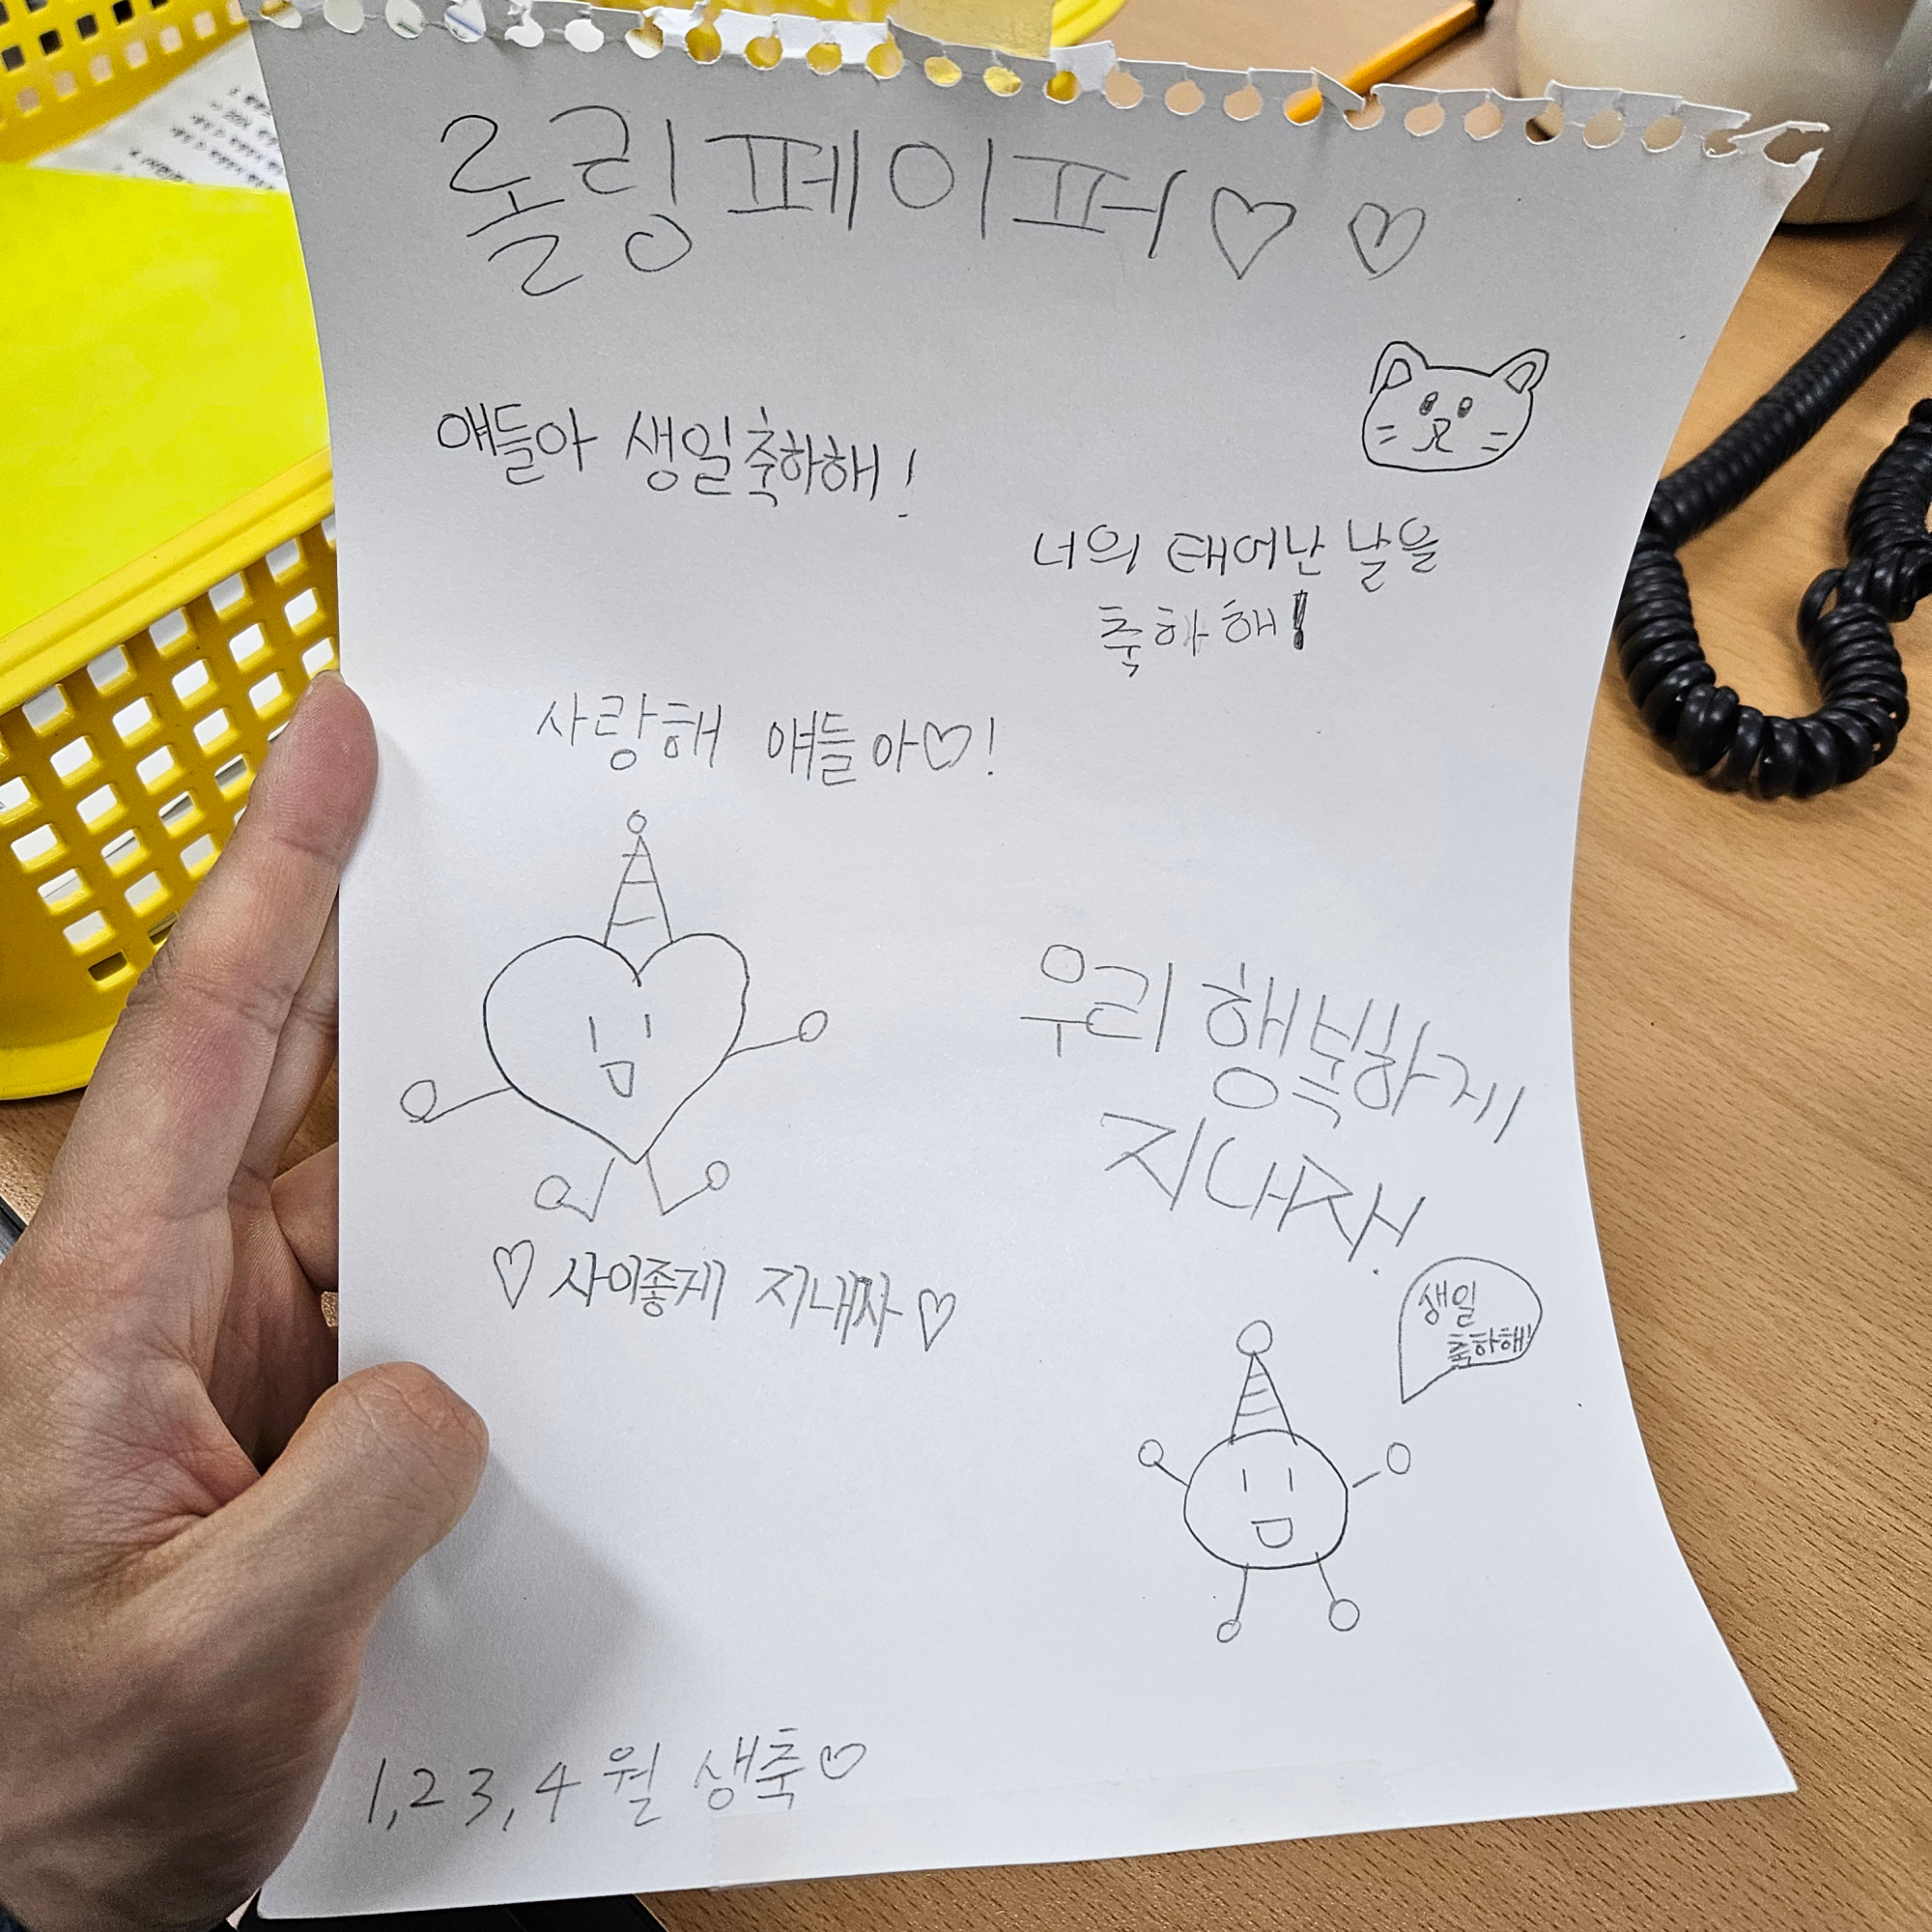 롤링페이퍼♡♡
얘들아 생일축하해!
너의 태어난 날을
축하해!
사랑해 얘들아♡!
우리 행복하게
지내자.
♡사이좋게 지내자♡
생일
축하해!
1,2 3,4 월 생축♡